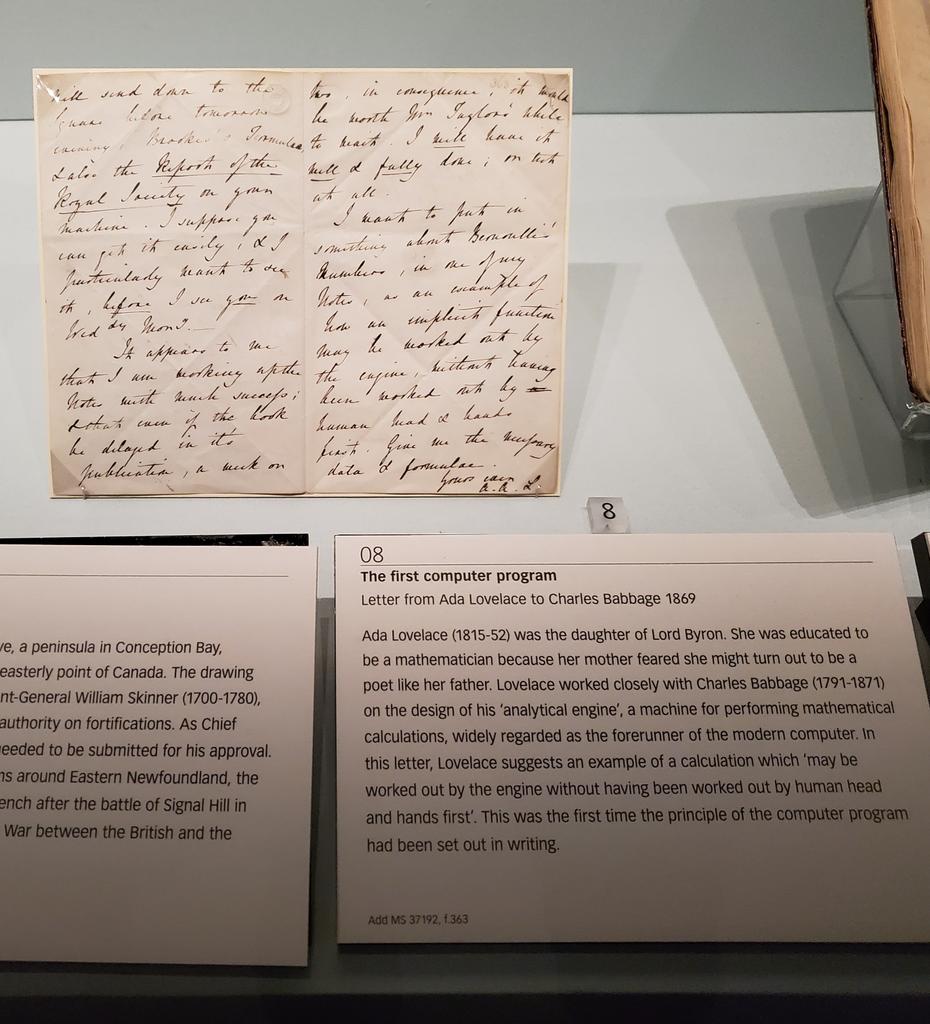 will send down to the
before tomorrow
evening, Brooke's Formulae,
& also the Report of the
Royal Society on your
machine. I suppose you
can get it easily, & I
particularly want to see
it, before I see you on
Wedy Morng.
It appears to me
that I am working up the
Notes with much success;
& that even if the book
be delayed in it's
publication, a week or
two, in consequence, it would
be worth Mr Taylor's while
to wait. I will have it
well & fully done; or not
at all.
I want to put in
something about Bernouilli's
Numbers, in one of my
Notes, as an example of
how an implicit function
may be worked out by
the engine, without having
been worked out by
human head & hands
first. Give me the necessary
data & formulae.
Yours ever
A. A. L
8
ve, a peninsula in Conception Bay,
easterly point of Canada. The drawing
nt-General William Skinner (1700-1780),
authority on fortifications. As Chief
eeded to be submitted for his approval.
ns around Eastern Newfoundland, the
ench after the battle of Signal Hill in
War between the British and the
08
The first computer program
Letter from Ada Lovelace to Charles Babbage 1869
Ada Lovelace (1815-52) was the daughter of Lord Byron. She was educated to
be a mathematician because her mother feared she might turn out to be a
poet like her father. Lovelace worked closely with Charles Babbage (1791-1871)
on the design of his 'analytical engine', a machine for performing mathematical
calculations, widely regarded as the forerunner of the modern computer. In
this letter, Lovelace suggests an example of a calculation which 'may be
worked out by the engine without having been worked out by human head
and hands first'. This was the first time the principle of the computer program
had been set out in writing.
Add MS 37192, f.363